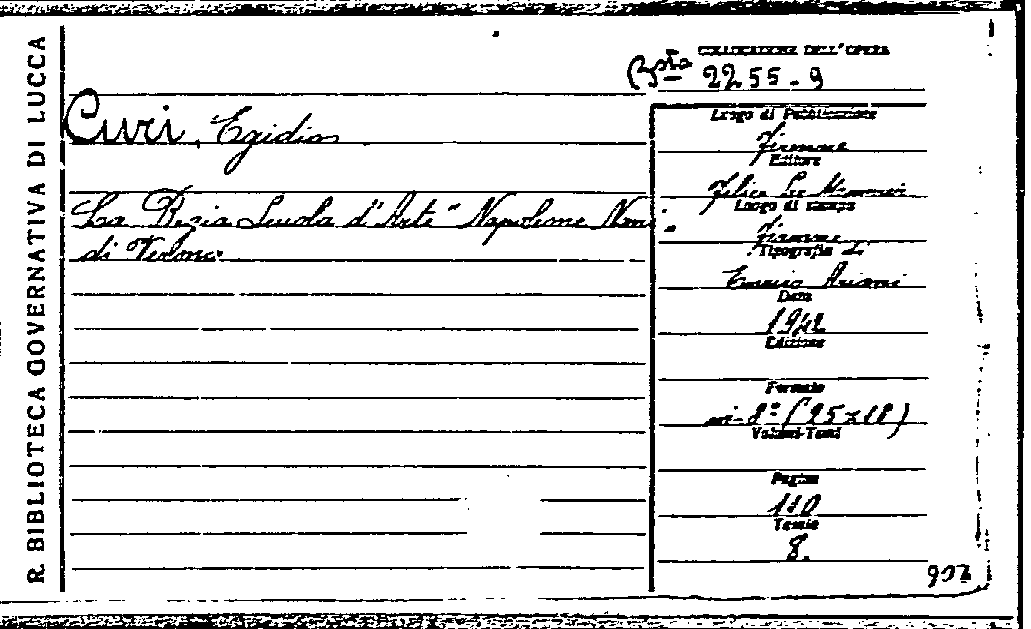 R. BIBLIOTECA GOVERNATIVA DI LUCCA
COLLOCAZIONE DELL'OPERA
Bsta 2255-9
Curi, Egidio
La Regia Scuola d'Arte "Napoleone Nani"
di Verona.
Luogo di Pubblicazione
Firenze
Editore
Felice Le Monnier
Luogo di stampa
Firenze
Tipografia di
Enrico Ariani
Data
1942
Edizione
Formato
in-8° (25x18)
Volumi-Tomi
Pagine
110
Tavole
8.